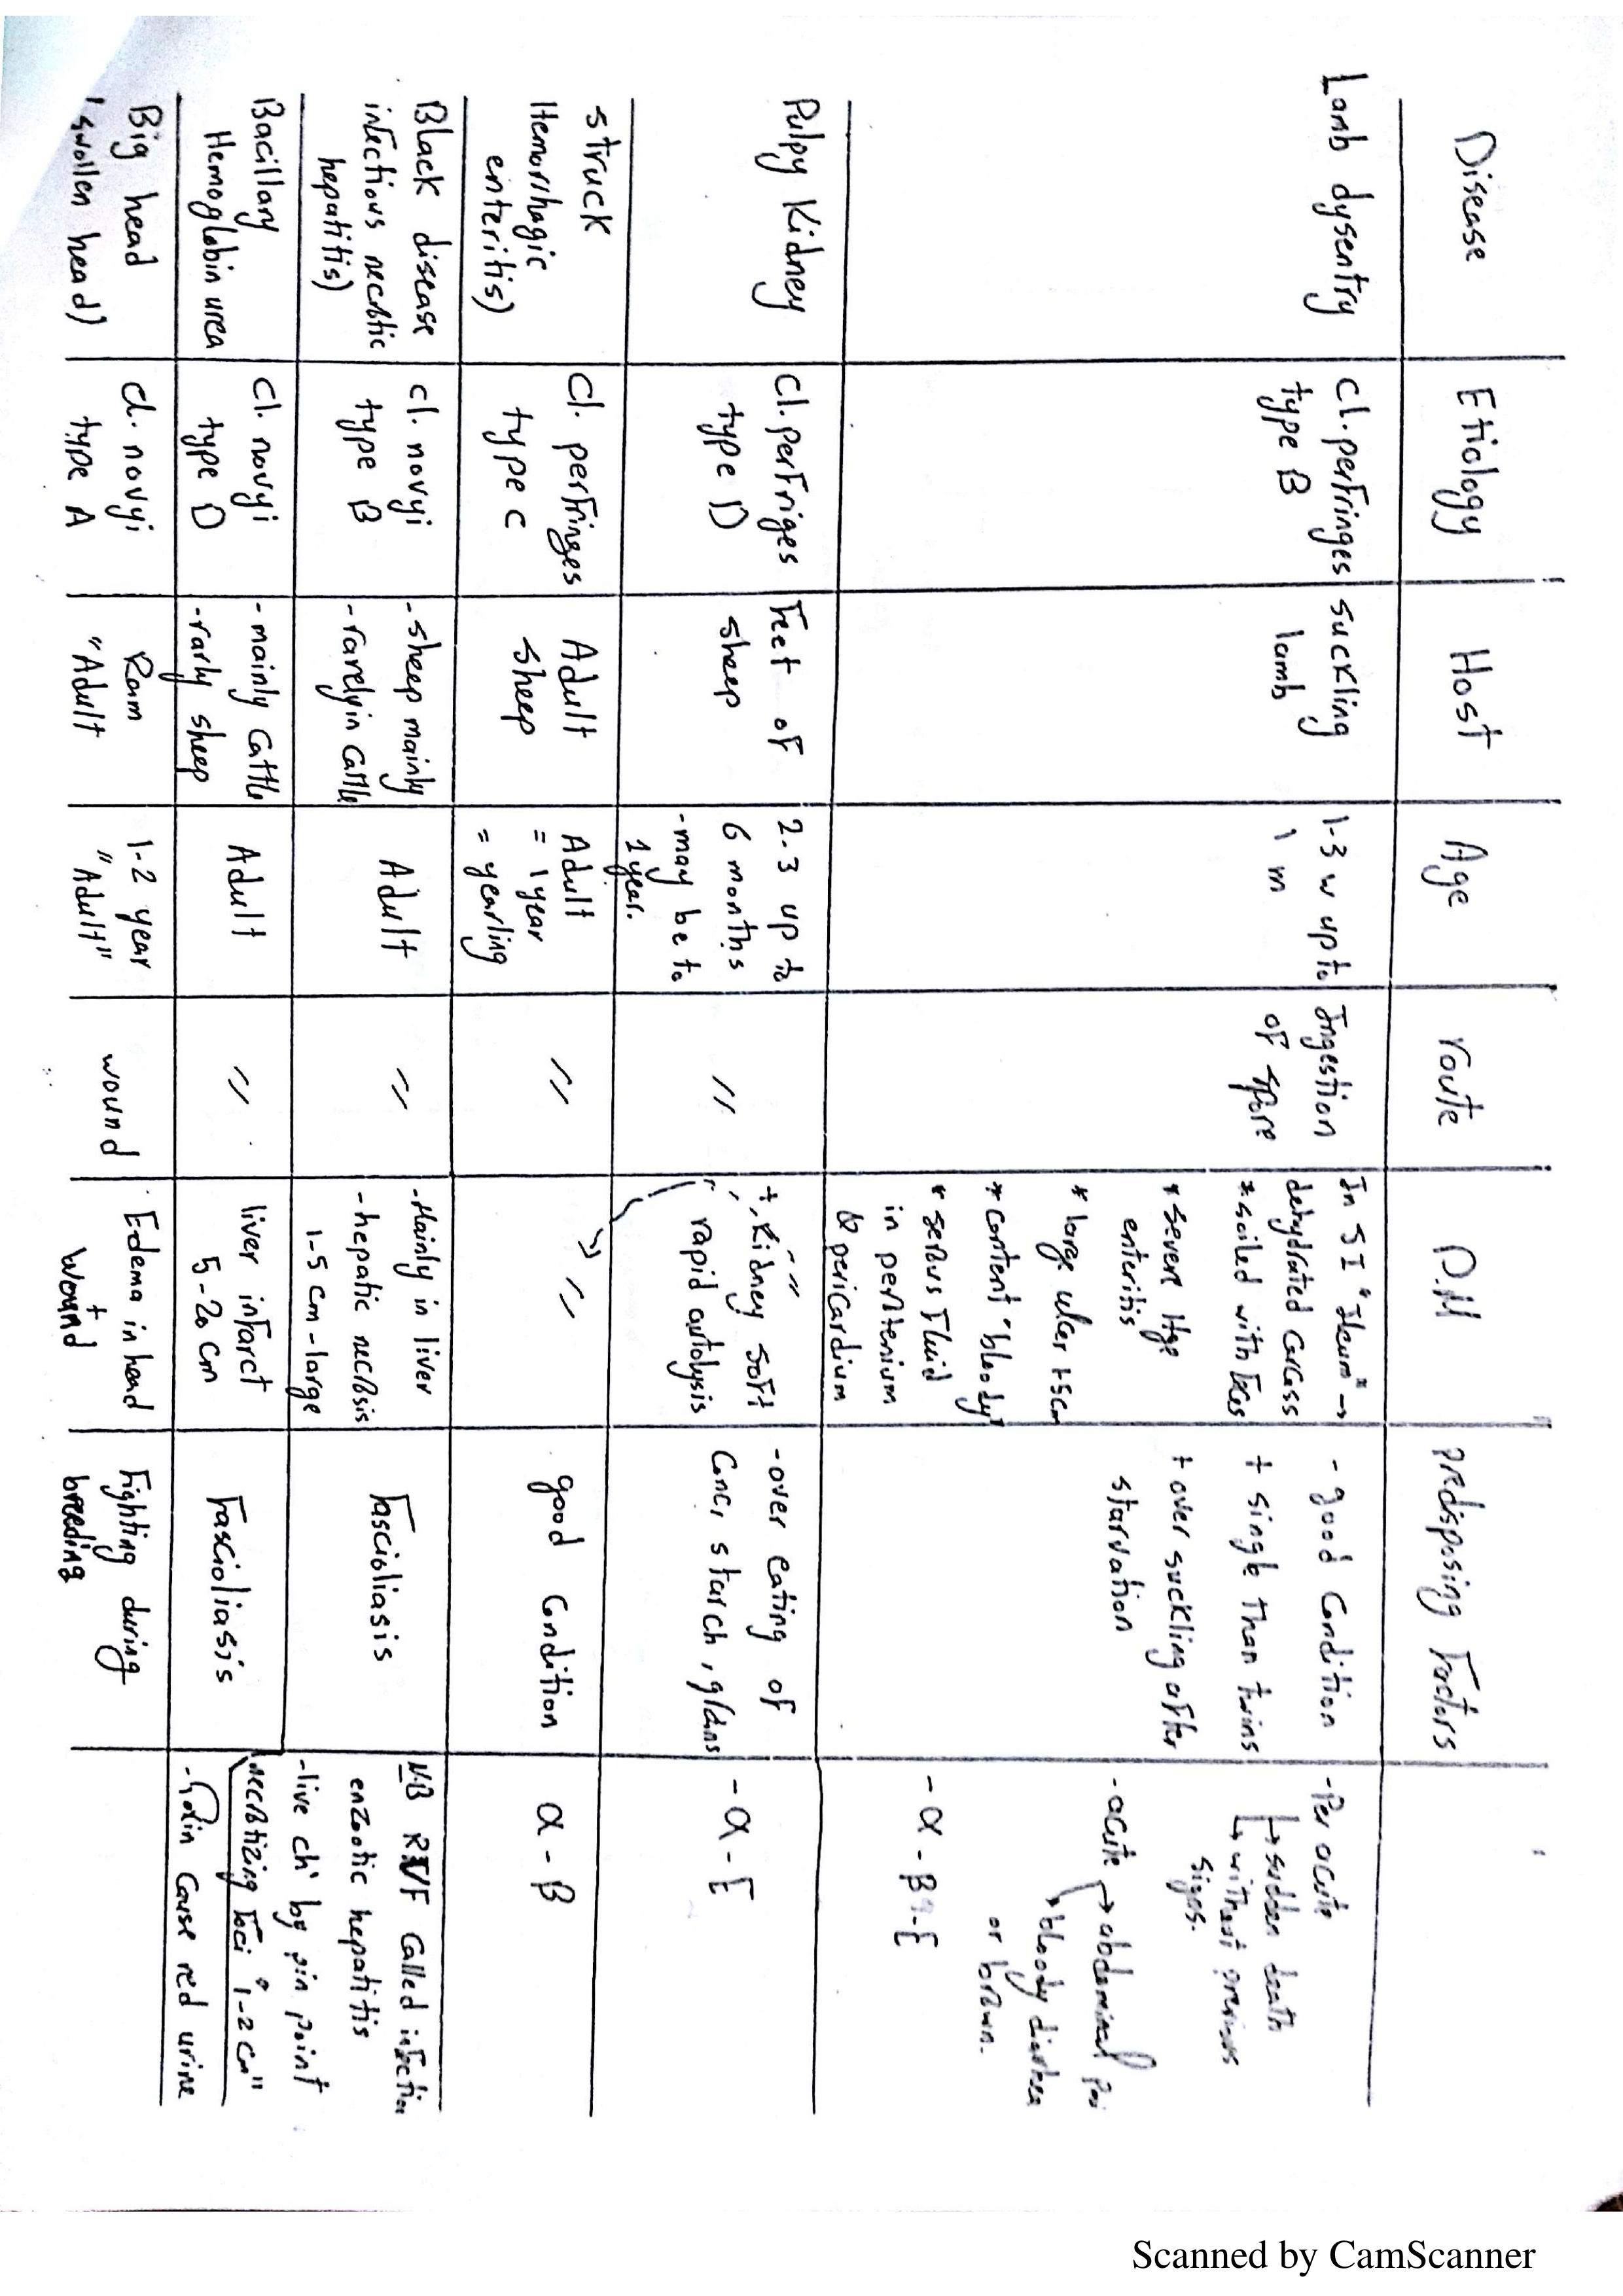 Disease
Etiology
Host
Age
route
P.M
predisposing Factors
Lamb dysentry
Cl. perfringes
type B
suckling
lamb
1-3 w up to
1 m
Ingestion
of spore
In SI "Ileum" →
dehydrated carcass
* soiled with feces
* severe Hge
enteritis
* large ulcer
* content "bloody"
* serous fluid
in peritenium
& pericardium
- good Condition
+ single than twins
+ over suckling after
starvation
- Per acute
↳ sudden death
↳ without previous
signs.
- acute → abdominal
↘ bloody diarhea
or brown.
- α - β - ξ
Pulpy Kidney
Cl. perfriges
type D
Feet of
sheep
2-3 up to
6 months
- may be to
1 year.
"
"
+, Kidney soft
rapid autolysis
- over eating of
Conc, starch,
- α - ξ
struck
Hemorrhagic
enteritis)
Cl. perfringes
type C
Adult
sheep
Adult
= 1 year
= yearling
"
"
good Condition
α - β
Black disease
infectious necrotic
hepatitis)
cl. novyi
type B
- sheep mainly
- rarely in cattle
Adult
"
- Mainly in liver
- hepatic necrosis
1-5 cm - large
Fascioliasis
N.B RVF Called infection
enzootic hepatitis
- live ch' by pin point
necrotizing foci "1-2 cm"
Bacillary
Hemoglobin urea
Cl. novyi
type D
- mainly cattle
- rarly sheep
Adult
"
liver infarct
5-20 cm
Fascioliasis
cause red urine
Big head
(swollen head)
cl. novyi
type A
Ram
"Adult
1-2 year
"Adult"
wound
Edema in head
+
wound
Fighting during
breeding
Scanned by CamScanner